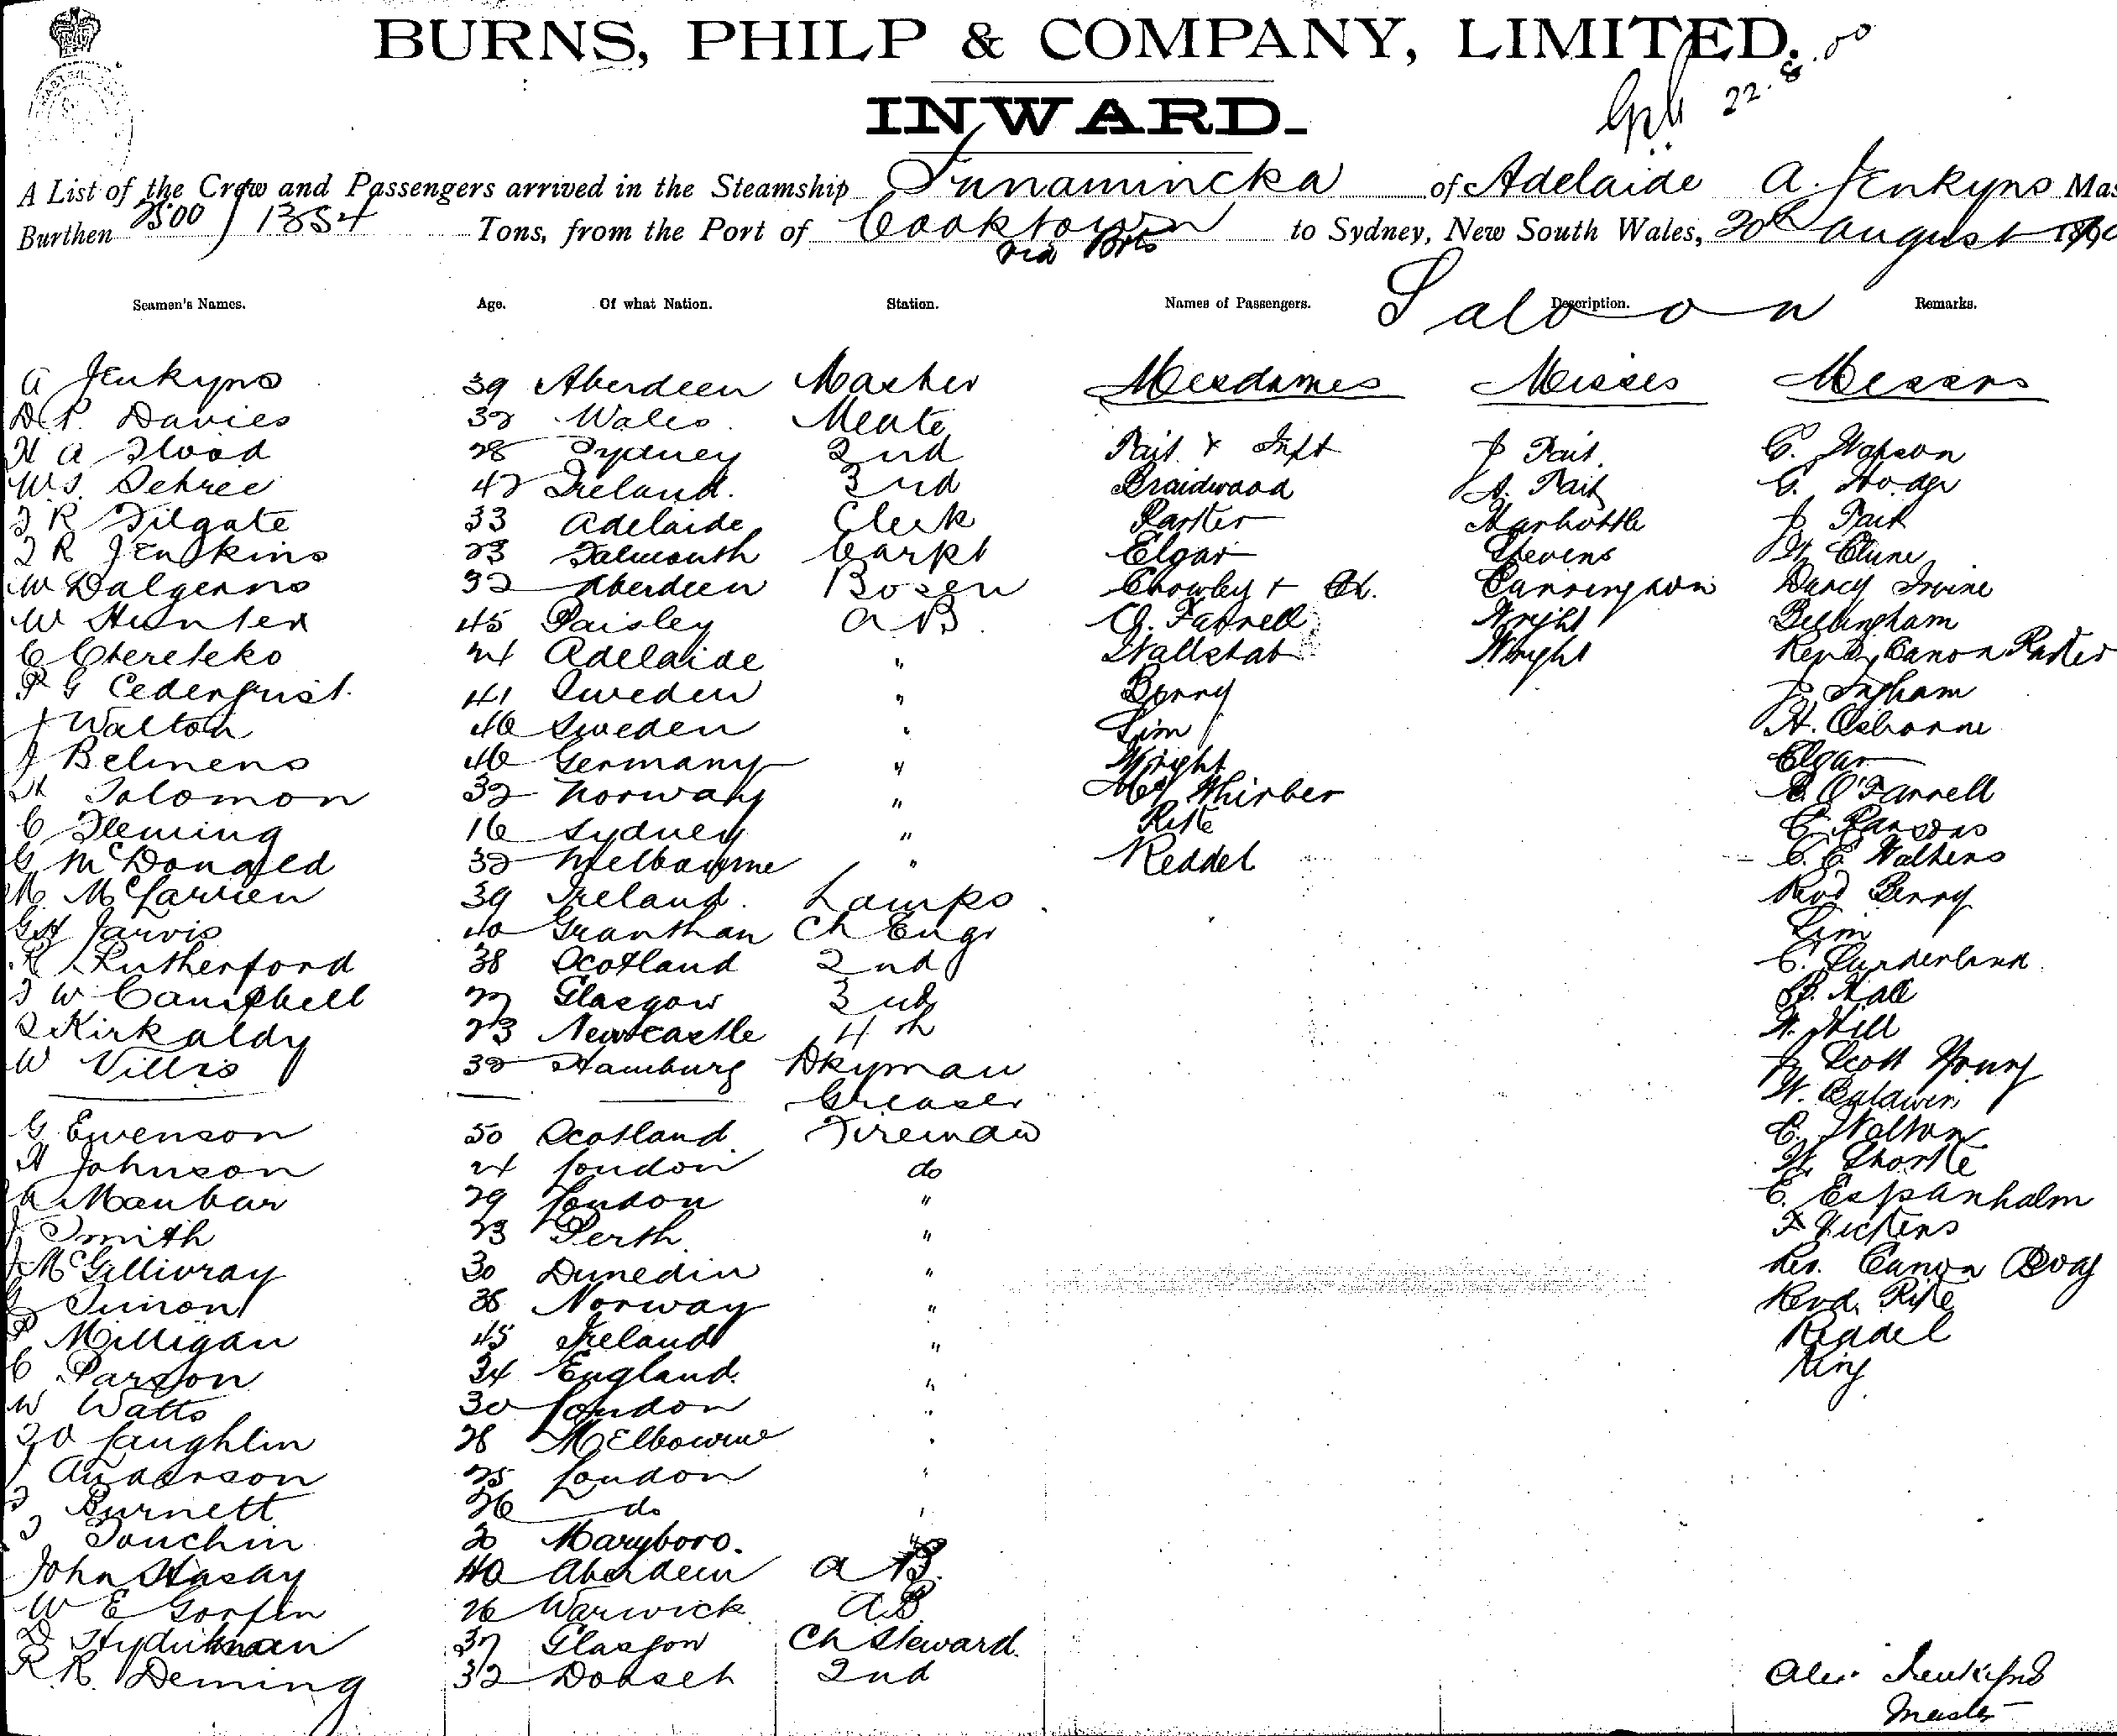 BURNS, PHILP & COMPANY, LIMITED.
22.8.00
INWARD.
A List of the Crew and Passengers arrived in the Steamship Innamincka of Adelaide A. Jenkyns Mas
Burthen 2500 / 1354 Tons, from the Port of Cooktown to Sydney, New South Wales, 20th August
via Pts
Seamen's Names. Age. Of what Nation. Station. Names of Passengers. Description. Remarks.
Saloon
A Jenkyns 39 Aberdeen Master Mesdames Misses Messrs
D. P. Davies 32 Wales Meate
H A Flood 28 Sydney 2nd Tait & Inft J Tait C. Watson
W S. Dehree 42 Ireland. 3rd Braidwood A. Tait G. Hodge
F R Filgate 33 Adelaide Clerk Parker Harbottle J. Tait
J R Jenkins 23 Falmouth Carpt Elgar Stevens W. Clune
W Dalgerns 32 Aberdeen Bosen Crowley + Ch. Carrington Darcy Irvine
W Hunter 45 Paisley A B O. Farrell Wright Bellingham
C 24 Adelaide " Wallstab Wright Revd. Canon Parker
P G Cederquist 41 Sweden " Berry J. Ingham
J Walton 40 Sweden " Lim H. Osborne
J Belmens 46 Germany " Wright Elgar
H Solomon 32 Norway " Mc Whirter O'Farrell
C Fleming 16 Sydney " Rike C. Parsons
G McDonald 32 Melbourne " Reddel C. C. Walkers
M. McLarrien 39 Ireland. Lamps Revd Berry
G H Jarvis 40 Granthan Ch Engr Lim
R Rutherford 38 Scotland 2nd C. Sunderland
J W Campbell 27 Glasgow 3rd B. Hall
Kirkaldy 23 Newcastle 4th W. Hill
W Villis 32 Hamburg Dkyman J. Scott Young
Greaser W. Baldwin
G. Ewenson 50 Scotland Fireman C. Walton
H Johnson 24 London do W. Shortle
A Maubar 29 London " C. Espanholm
J Smith 23 Perth " F Vickens
J McGillivray 30 Dunedin " Rev. Canon Boag
Simon 38 Norway " Revd. Rike
P Milligan 45 Ireland " Reddel
C Parson 34 England. " King
W Watts 30 London "
J O Laughlin 28 Melbourne "
J Anderson 25 London "
J Burnett 26 do "
J Touchin 20 Maryboro. "
John Hasay 40 Aberdeen A B.
W E Gorfin 26 Warwick AB
D 37 Glasgow Ch Steward.
R. R. Deming 32 Dorset 2nd
Alex. Jenkyns
Master